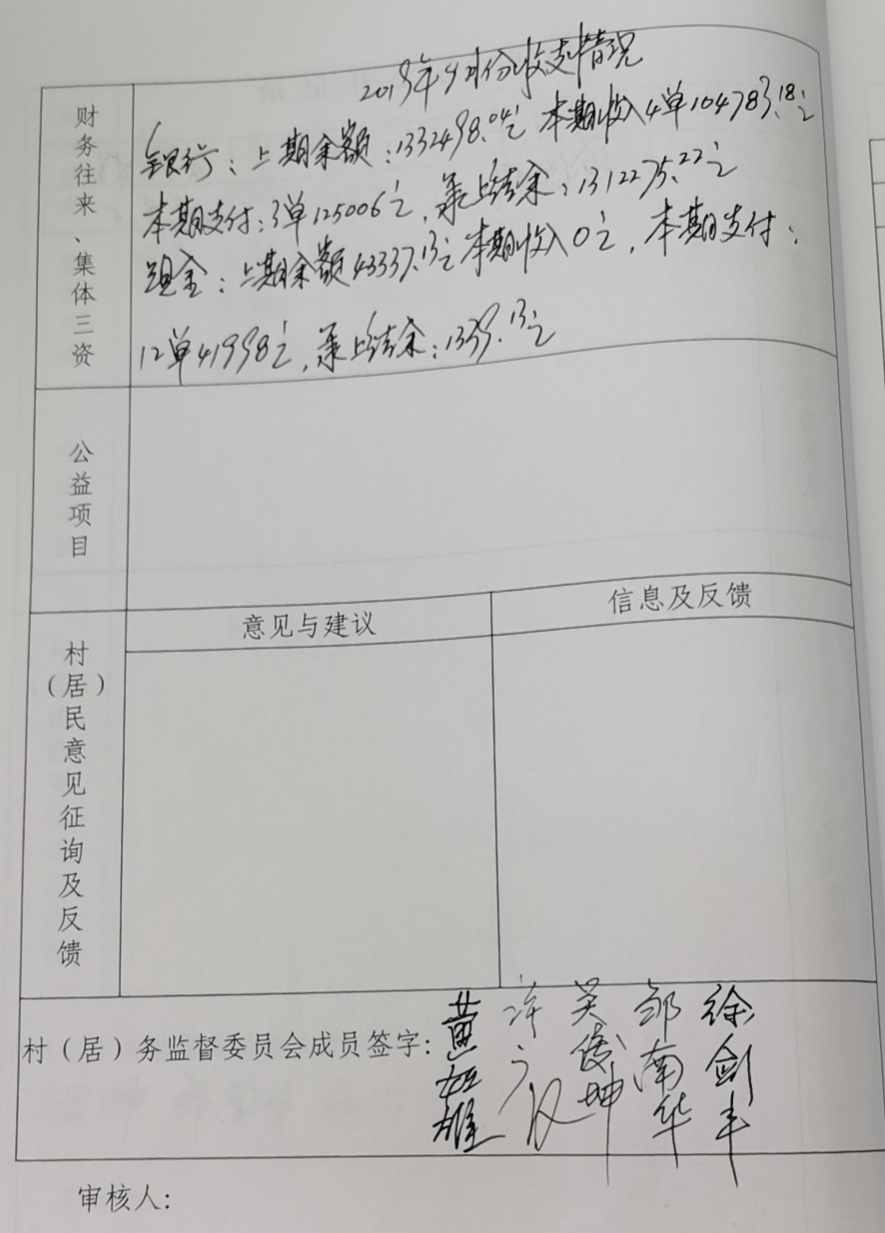 2019年9月份收支情况
财务往来、集体三资
银行：上期余额：1332498.04元 本期收入4单104783.18元
本期支付：3单125006元，累上结余：1312275.22元
现金：上期余额43337.13元 本期收入0元，本期支付：
12单41998元，累上结余：1339.13元
公益项目
意见与建议
信息及反馈
村（居）民意见征询及反馈
村（居）务监督委员会成员签字：
黄 许 吴 邹 徐
南 剑
雄 汉 坤 华 丰
审核人：